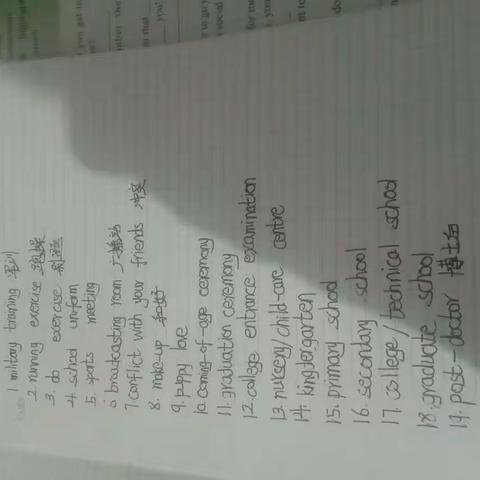 1 military training 军训
2. running exercise 跑操
3. do exercise
4. school uniform
5. sports meeting
6 broadcasting room 广播站
7 conflict with your friends 冲突
8. make-up 和好
9. puppy love
10. coming-of-age ceremony
11. graduation ceremony
12. college entrance examination
13. nursery/child-care centre
14. kingdergarten
15. primary school
16. secondary school
17. college/technical school
18. graduate school
19. post-doctor 博士后